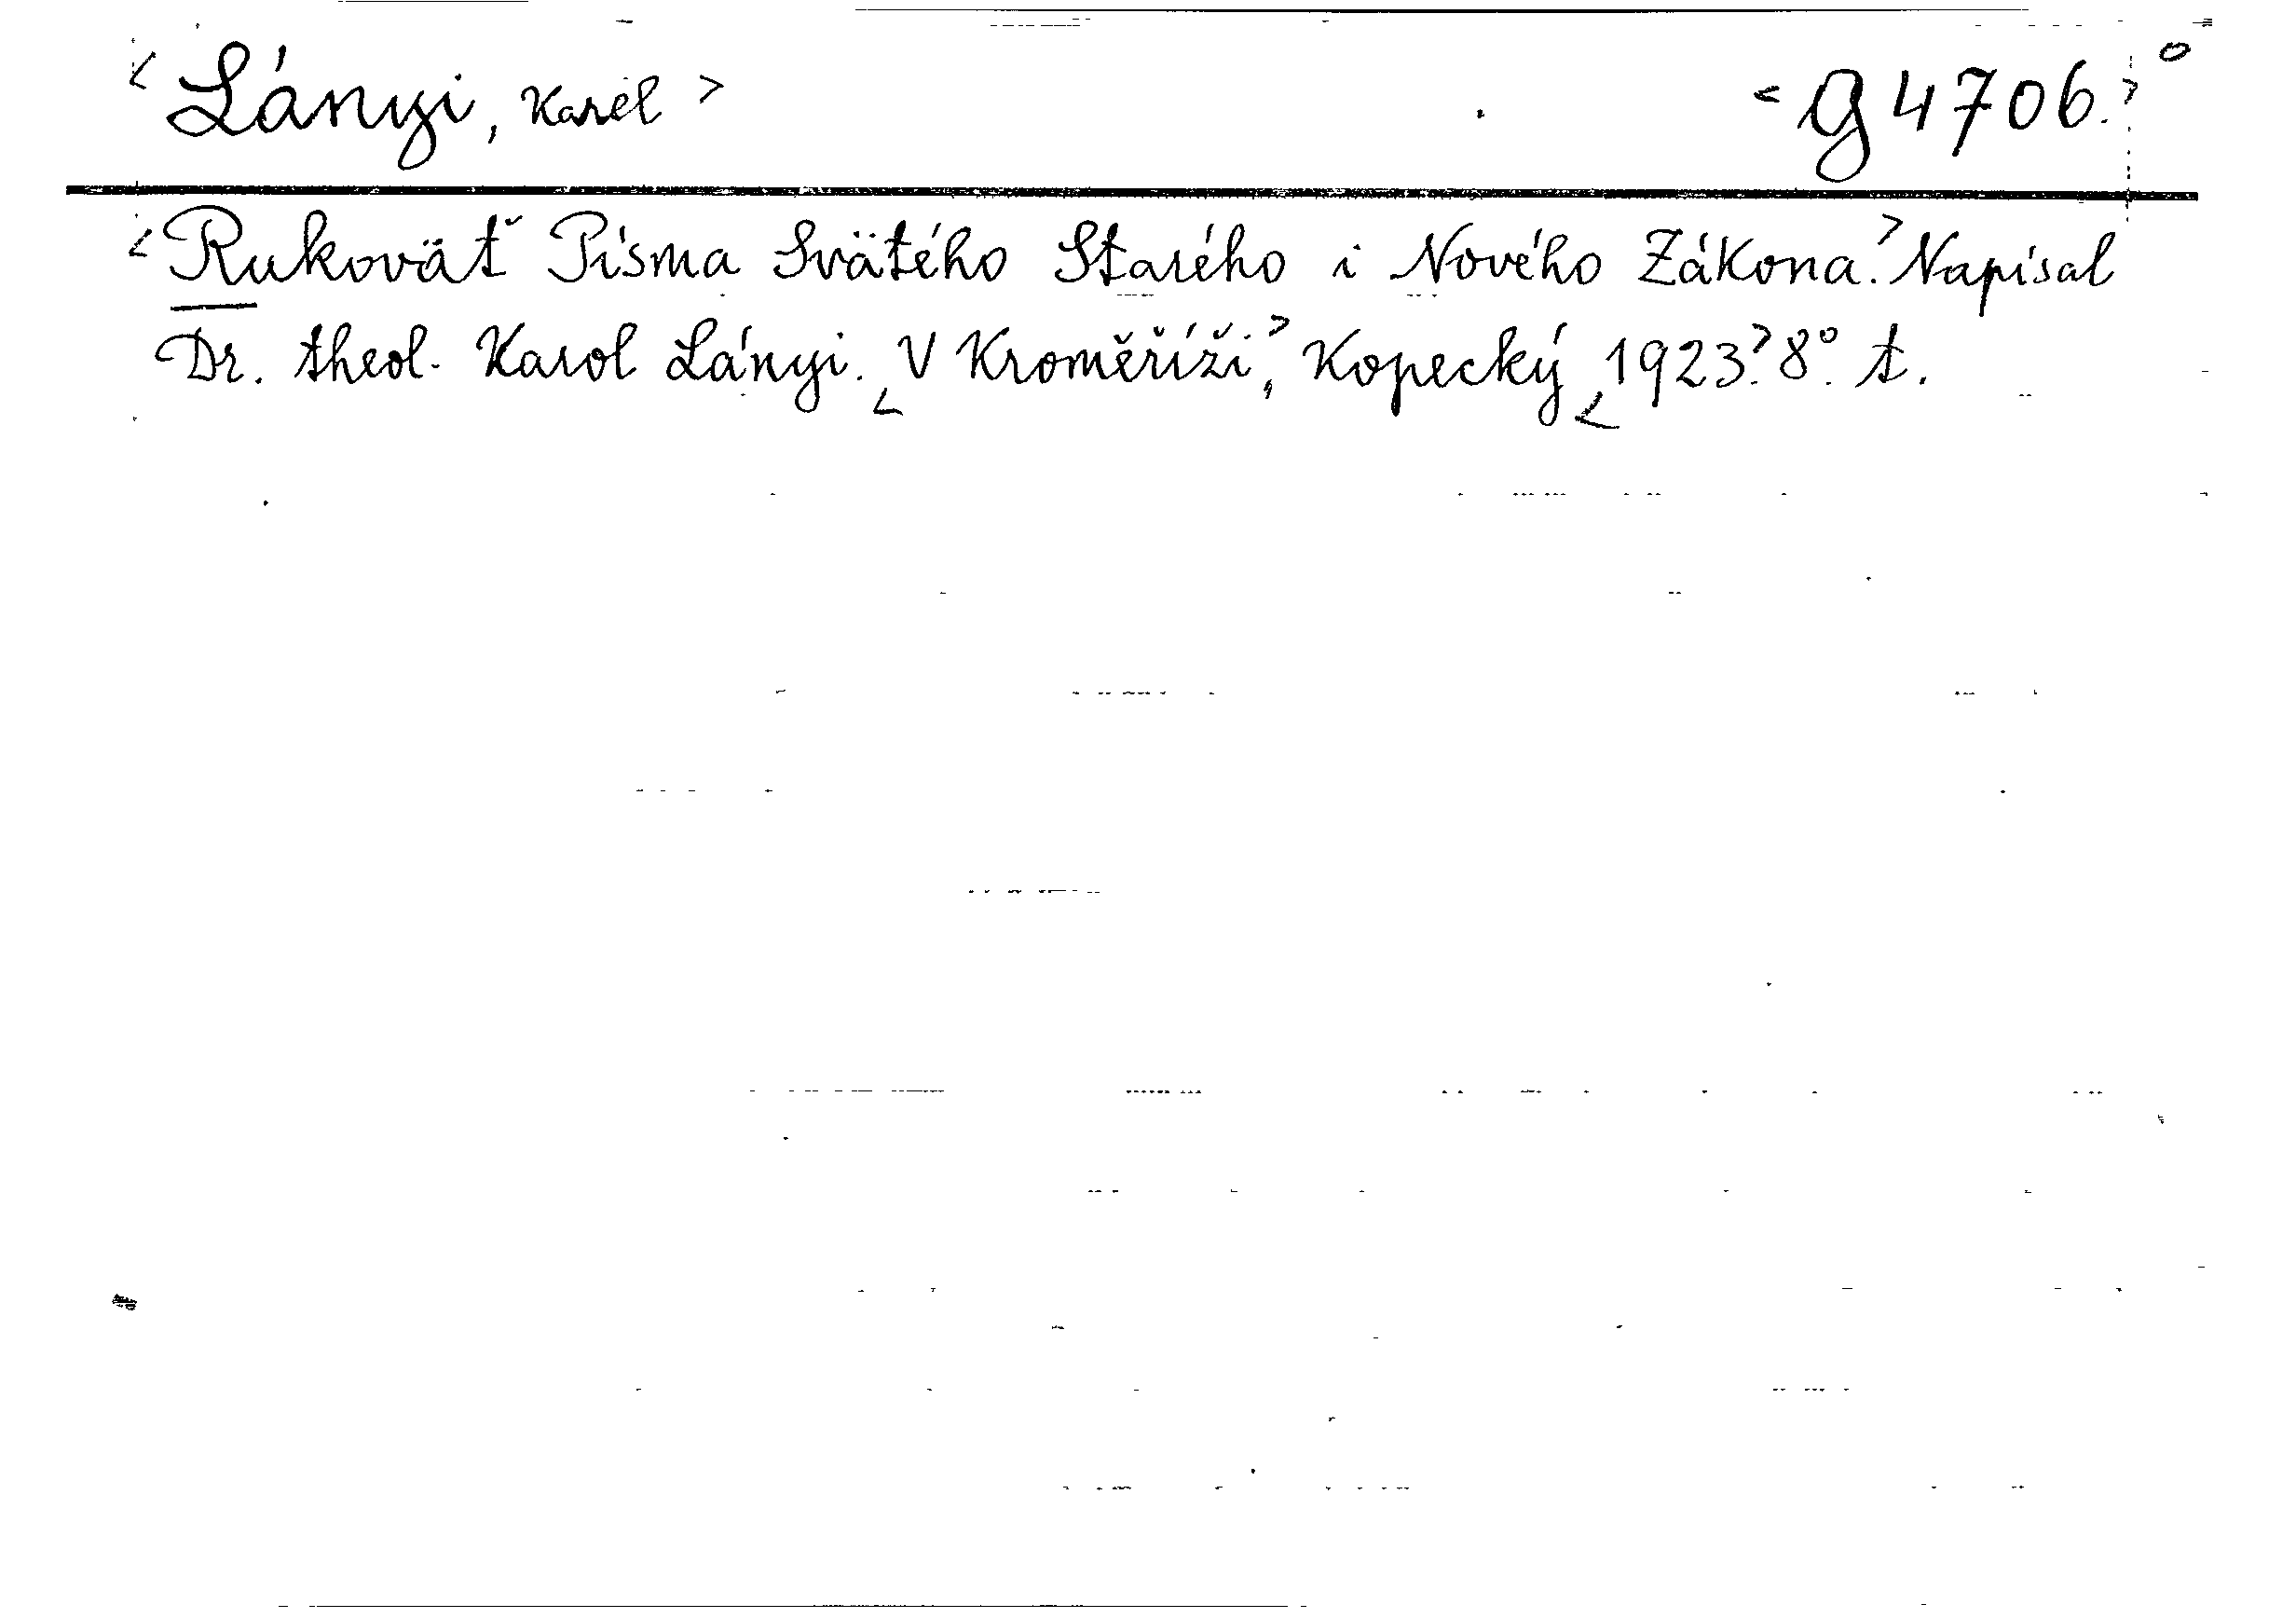 < Lányi, Karel > < g 4706. > °
< Rukoväť Písma Svätého Starého i Nového Zákona. > Napísal
Dr. theol. Karol Lányi. < V Kroměříži, > Kopecký < 1923. > 8°. t.